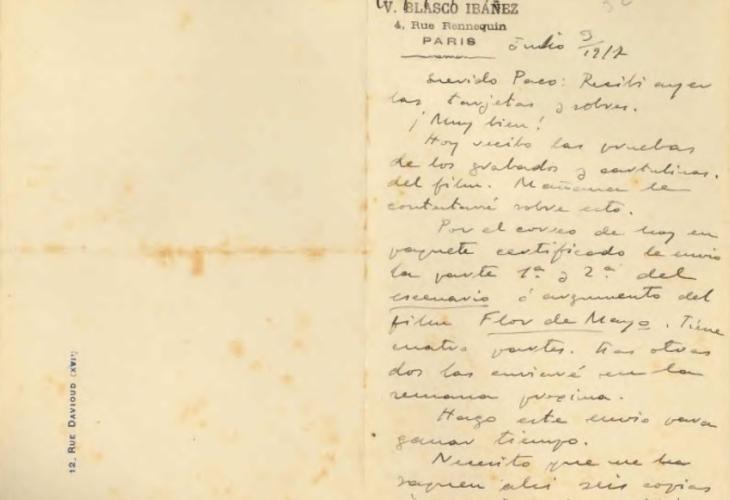 V. BLASCO IBÁÑEZ
4, Rue Rennequin
PARIS
Querido Paco: Recibí ayer
las tarjetas y sobres.
¡Muy bien!
Hoy recibo las pruebas
de los grabados y cartulinas.
del film. Mañana le
contestaré sobre esto.
Por el correo de hoy en
paquete certificado le envio
la parte 1ª y 2ª del
escenario ó argumento del
film Flor de Mayo. Tiene
cuatro partes. Las otras
dos las enviaré en la
semana proxima.
Hago este envio para
ganar tiempo.
Necesito que me ha
saquen ahi seis copias
12, RUE DAVIOUD (XVIᵉ)